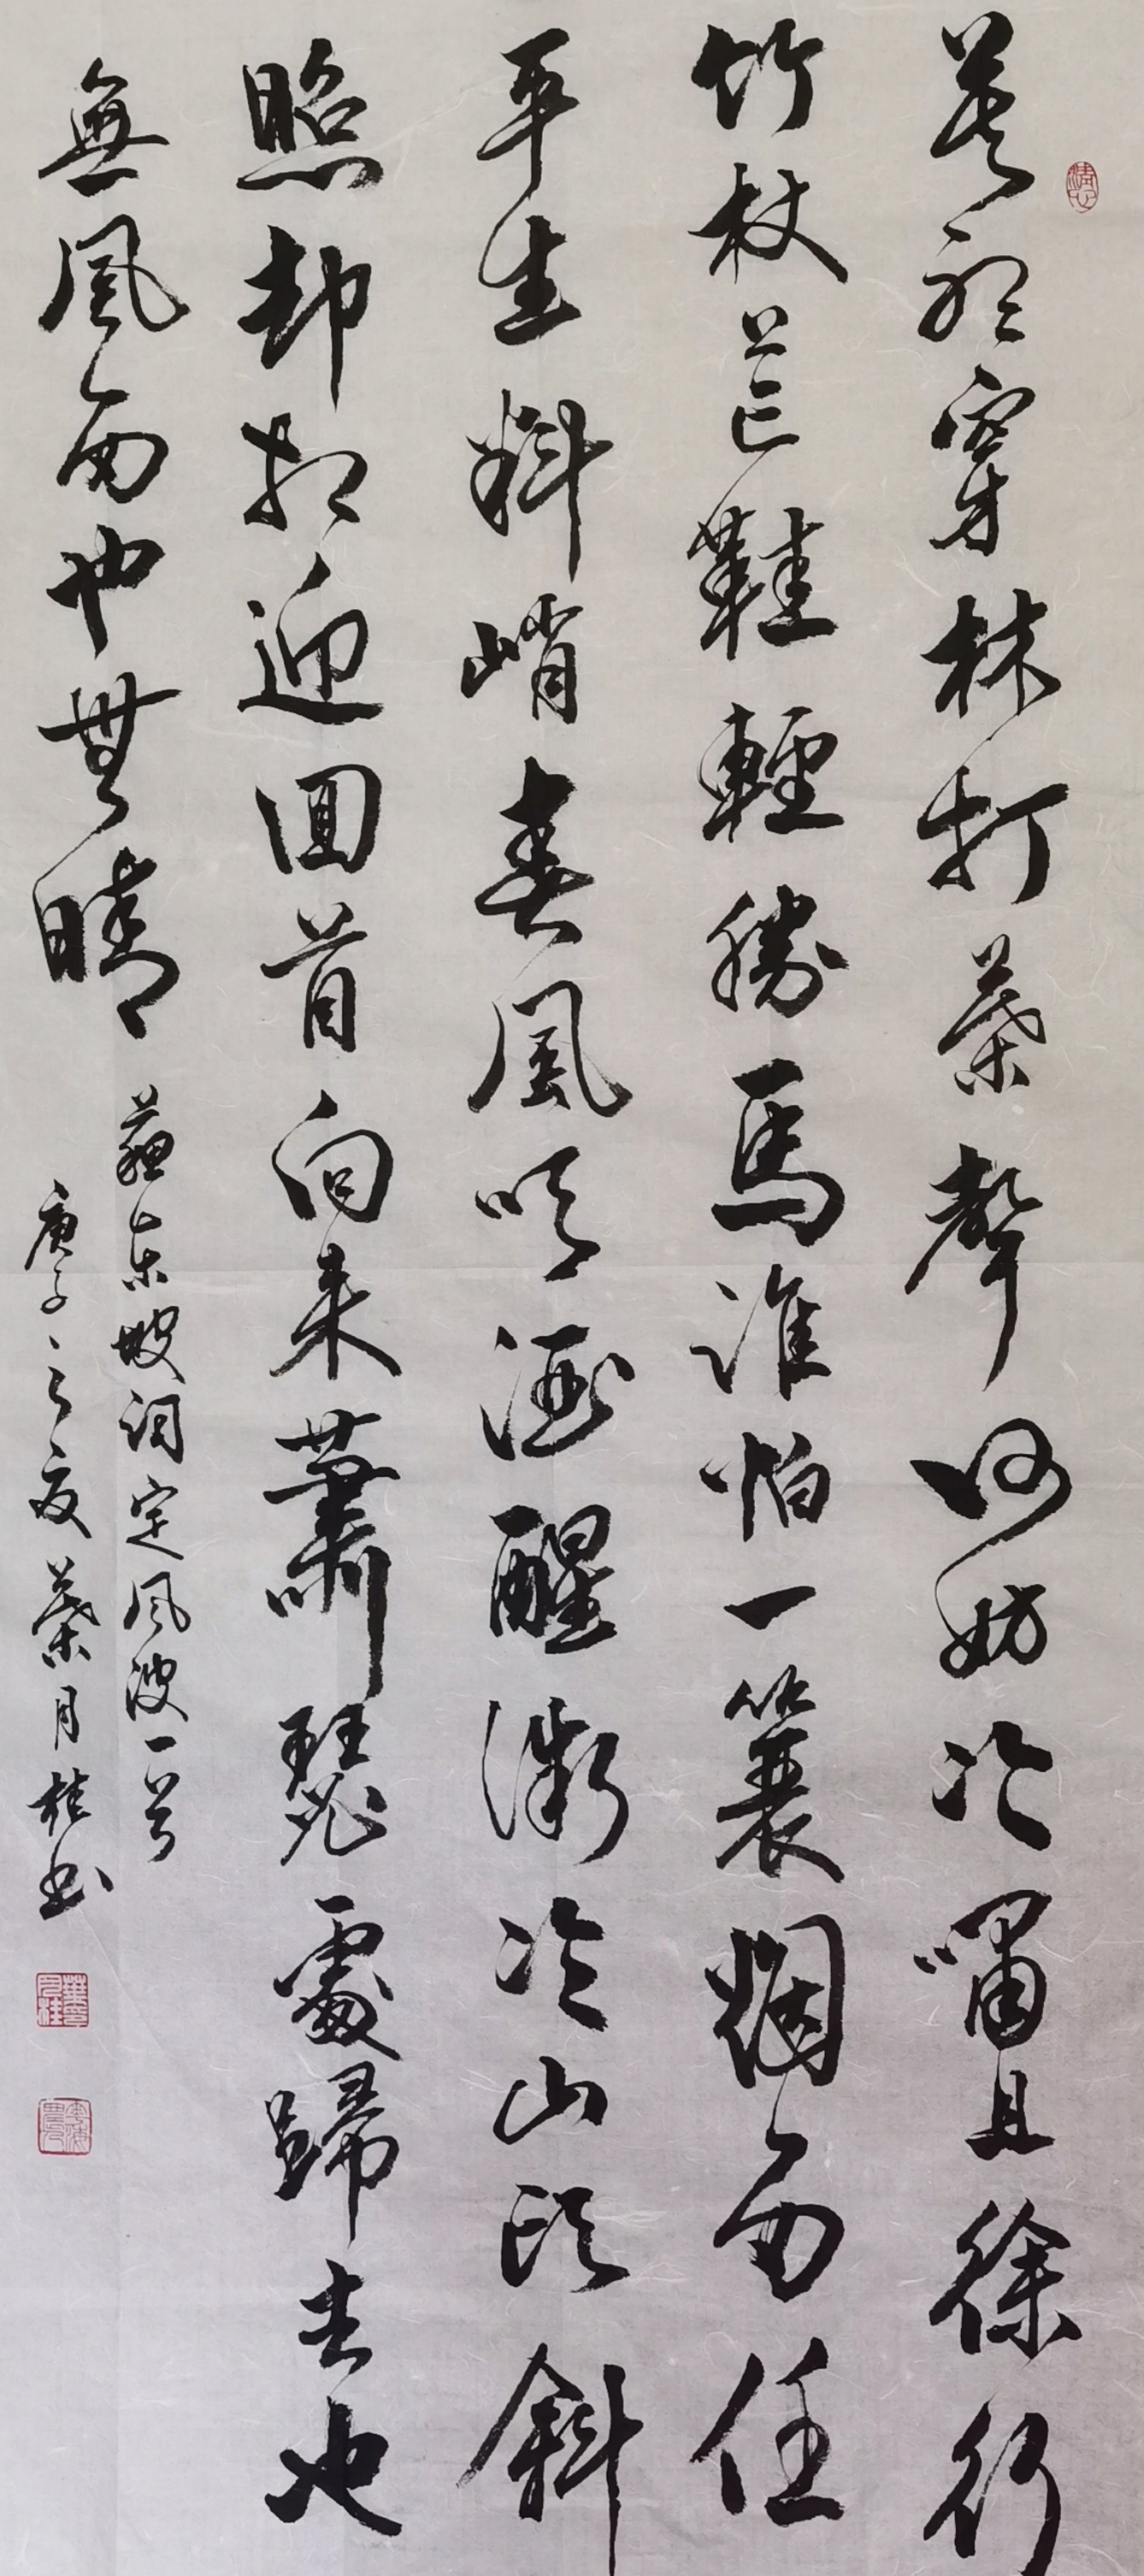 莫聽穿林打葉聲何妨吟嘯且徐行
竹杖芒鞋輕勝馬誰怕一蓑烟雨任
平生料峭春風吹酒醒微冷山頭斜
照却相迎回首向来蕭瑟處歸去也
無風雨也無晴
蘇東坡词定风波一首
庚子之夏葉月桂书